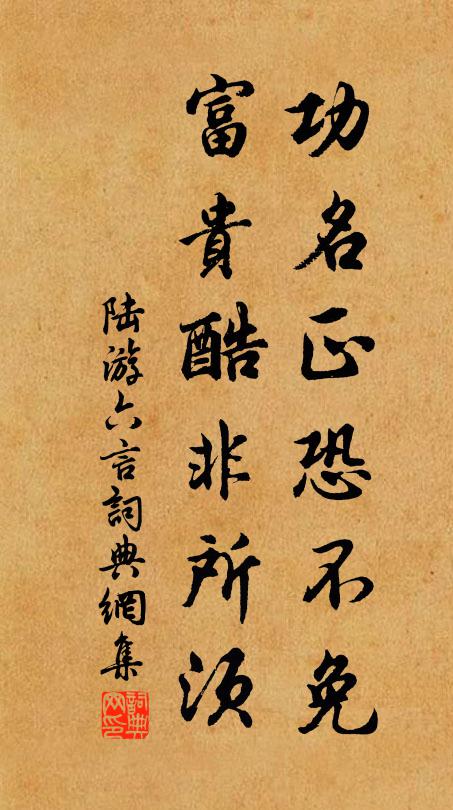 功名正恐不免
富貴酷非所須
陆游六言詞典網集
詞典网印